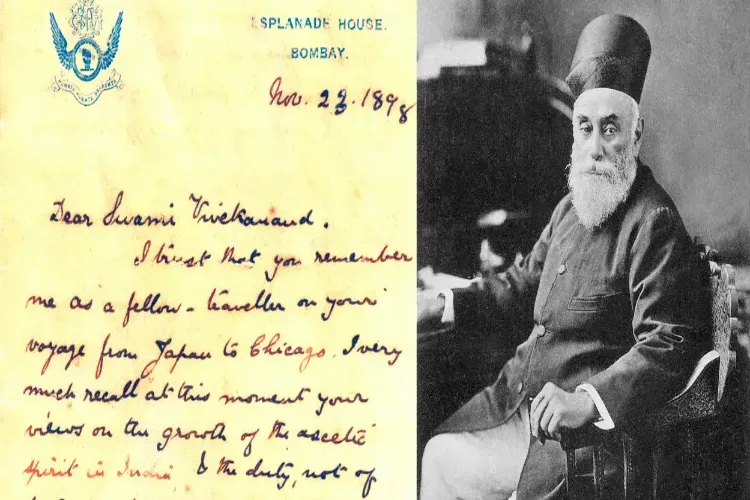 ESPLANADE HOUSE.
BOMBAY.
Nov. 23. 1898
Dear Swami Vivekanand.
I trust that you remember
me as a fellow-traveller on your
voyage from Japan to Chicago. I very
much recall at this moment your
views on the growth of the ascetic
spirit in India, & the duty, not of